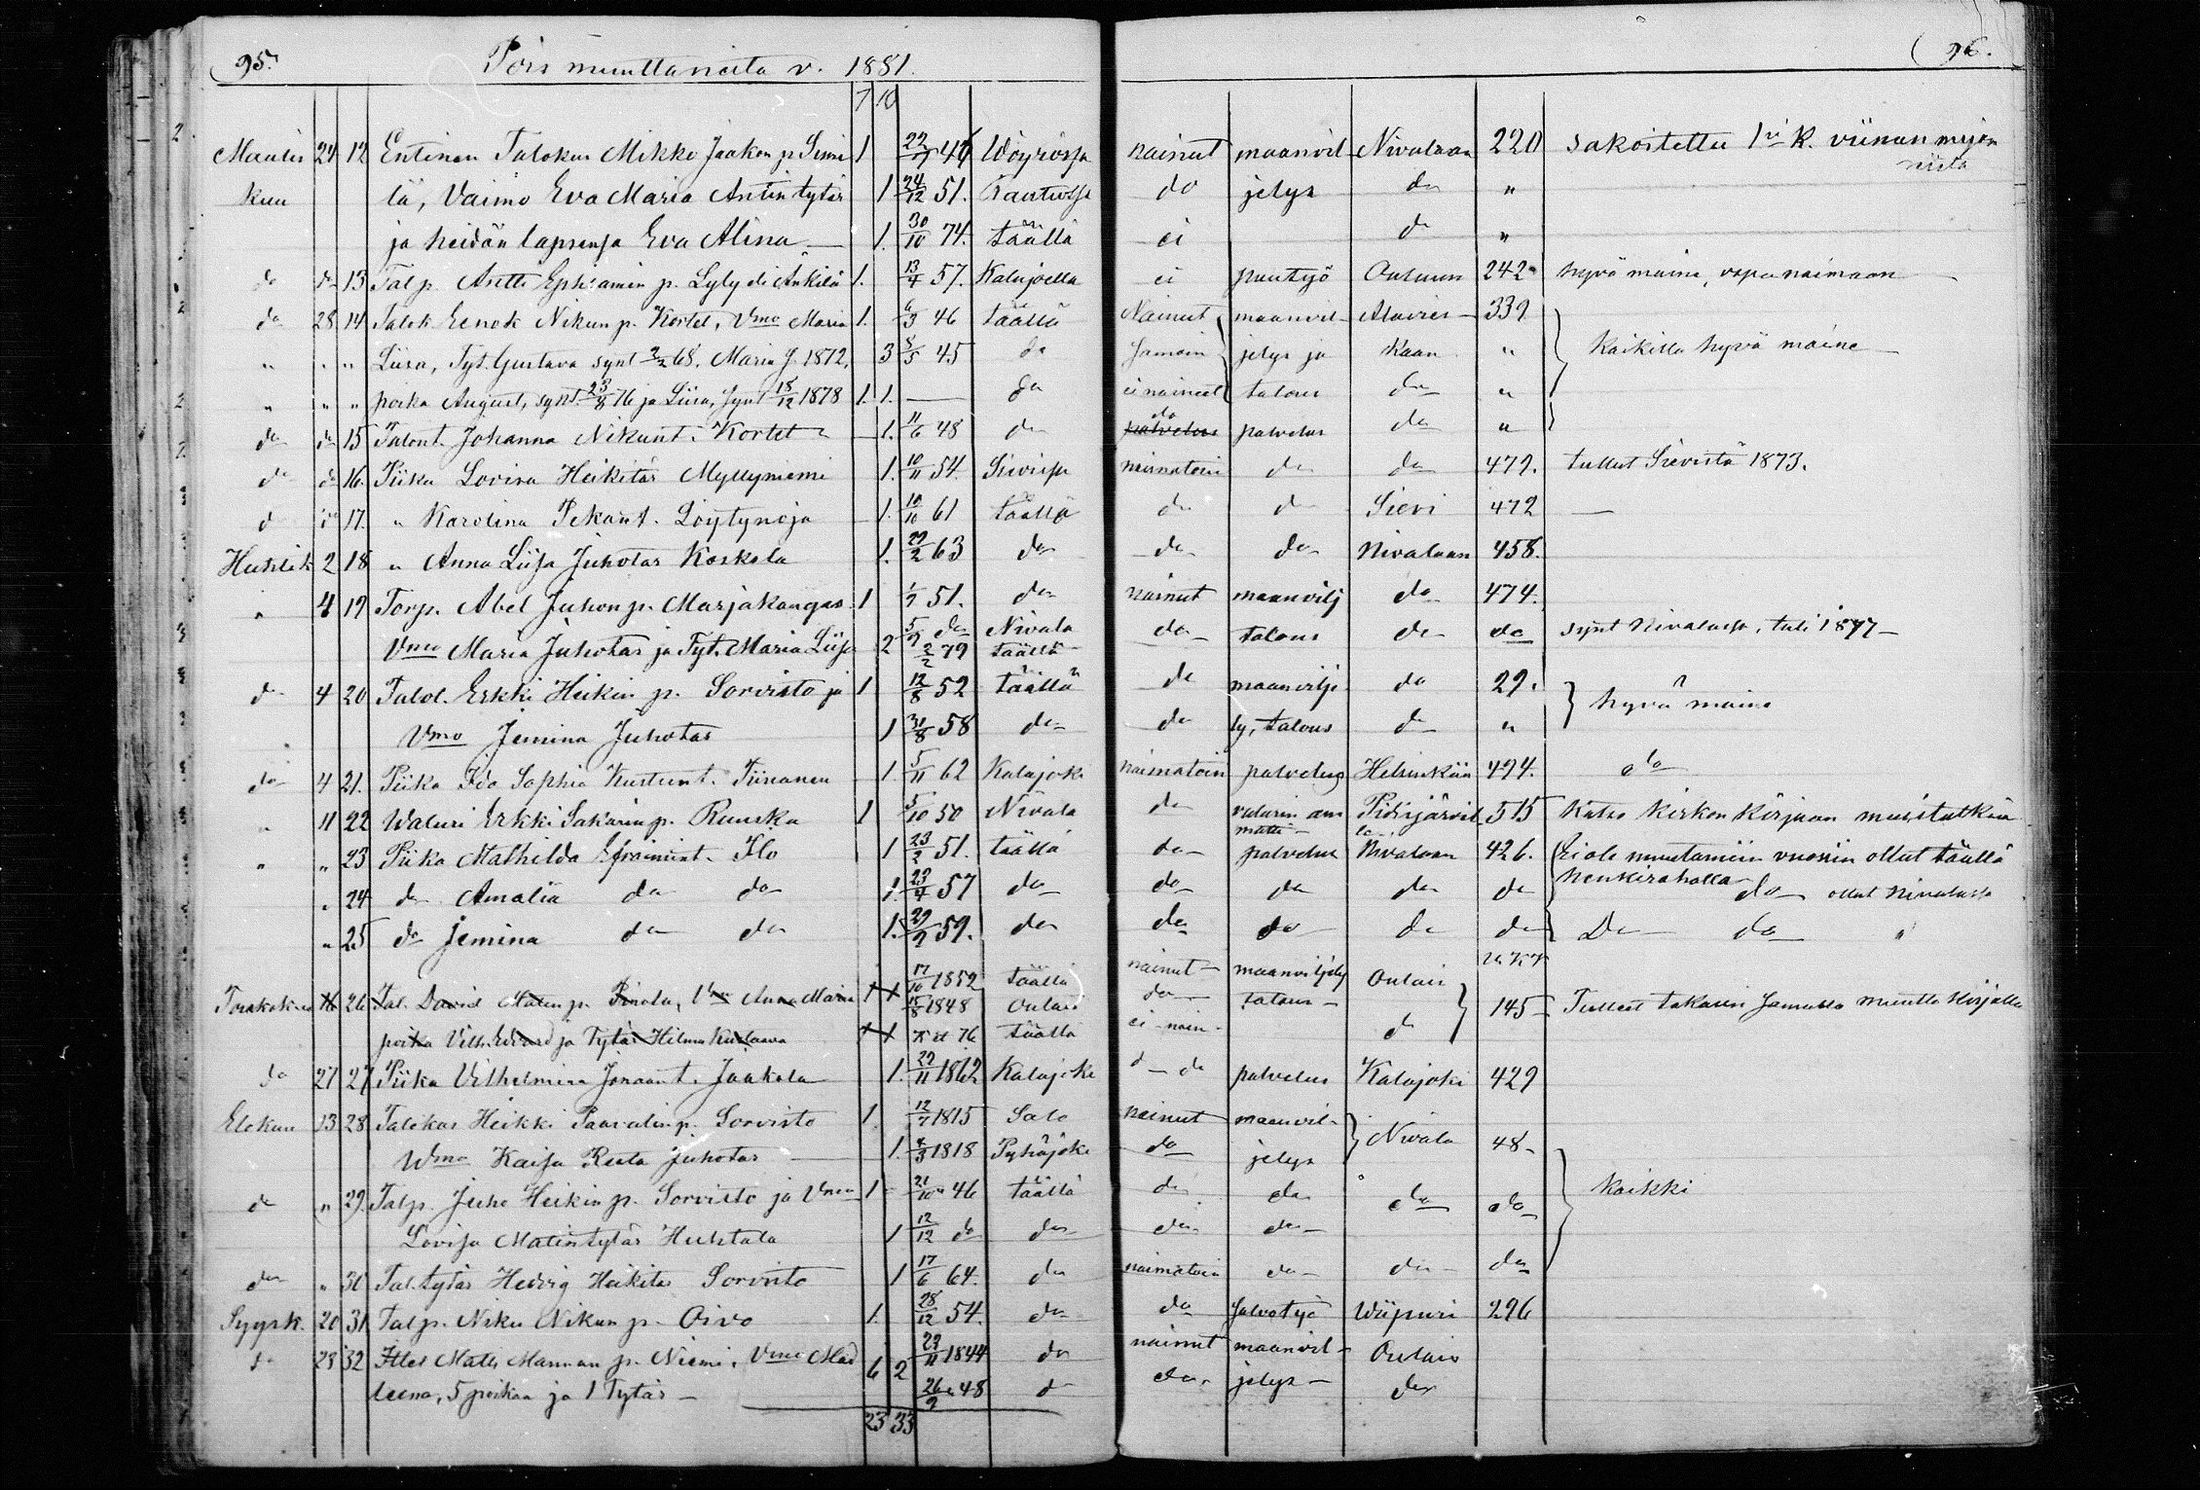 95. Pois muuttaneita v. 1881. 96.
7 10
Maalis 24 12 Entinen Talokas Mikko Jaakon p. Simi 1 22 46 Wöyrössä nainut maanvil Nivalaan 220 sakoitettu 1 k. viinan myön
nistä
kuu lä, Vaimo Eva Maria Antin tytär 1 24/12 51. do jelys do "
ja heidän lapsensa Eva Alina 1. 30/10 74. täällä ei do "
do do 13 Talp. Antti Ephraimin p. Lyly eli Änkilä 1. 13/4 57. Kalajoella ei puutyö Ouluun 242 hyvä maine, vapa naimaan
do 28 14 Talok Eenok Nikun p. Kortet, Vmo Maria 1. 6/3 46 täällä Nainut maanvil- Alavies- 339
" " " Liisa, Tyt. Gustava synt 68, Maria J. 1872, 3 8/5 45 do Samoin jelys ja kaan " Kaikilla hyvä maine
" " " poika August, synt. 23/8 76 ja Liisa, synt 18/12 1878 1. 1. — do ei naineet talous do "
do do 15 Talont. Johanna Nikunt. Kortet 1. 11/6 48 do do palvelus do "
do do 16. Piika Lovisa Heikitär Myllyniemi 1. 10/11 54. Sievissä naimatoin do do 479. tullut Sievistä 1873.
do do 17. " Karolina Pekant. Löytynoja 1. 10/10 61 täällä do do Sievi 472 —
Huhtik 2 18 " Anna Liisa Juhotar Koskela 1. 29/2 63 do do do Nivalaan 458.
" 4 19 Torp. Abel Juhon p. Marjakangas 1 1/9 51. do nainut maanvilj do 474.
Vmo Maria Juhotar ja Tyt. Maria Liisa 2 5/9 do Nivala do talous do do synt Nivalassa, tuli 1877
2/2 79 täällä
do 4 20 Talol. Erkki Heikin p. Sorvisto ja 1 12/8 52 täällä do maanvilje do 29. hyvä maine
Vmo Jemina Juhotar 1 31/8 58 do do ly, talous do "
do 4 21. Piika Ida Sophia Kustunt. Tiiranen 1 5/11 62 Kalajoki naimatoin palvelus Helsinkiin 494. do
" 11 22 Waluri Erkki Sakarin p. Ruuska 1 5/10 50 Nivala do valurin am Pidisjärvel 515 Katso kirkon kirjaan muistutksia
matti
" " 23 Piika Mathilda Efraimint. Ilo 1 23/2 51. täällä do palvelus Nivalaan 426. Ei ole muutamiin vuosiin ollut täällä
henkirahalla
" 24 do Amalia do do 1. 23/4 57 do do do do do do ollut Nivalassa
" 25 do Jemina do do 1. 29/9 59. do do do do do Do do "
Toukokuu 16 26 Tal. David Matin p. Pirola, Vmo Anna Maria 17/10 1852 täällä nainut maanviljely Oulais
15/8 1848 Oulais do talous 145 Tulleet takasin samalla muutto kirjalla
poika Vilh. Edvard ja Tytär Hilma Kustaava 76 täällä ei nain- do
do 27 27 Piika Vilhelmina Joonant. Jaakola 1. 29/11 1862 Kalajoki d—do palvelus Kalajoki 429
Elokuu 13 28 Talokas Heikki Paavalin p. Sorvisto 1. 12/7 1815 Salo nainut maanvil- Nivala 48
Wmo Kaisa Reeta Juhotar 1. 1818 Pyhäjoki do jelys
do " 29. Talp. Juho Heikin p. Sorvisto ja Vmo 1 21/10 46 täällä do do do do Kaikki
Lovisa Matintytär Huhtala 1 12/12 do do do do
do " 30 Tal. tytär Hedvig Heikitär Sorvisto 1 17/6 64. do naimatoin do do do
Syysk. 20 31 Talp. Niku Nikun p. Oivo 1. 28/12 54. do do salvotyö Wiipuri 296
do 28 32 Itlel Matts Mannan p. Niemi, Vmo Mad 6 2 29/11 1844 do nainut maanvil- Oulais
leena, 5 poikaa ja 1 Tytär 26/9 48 do do jelys do
23 33